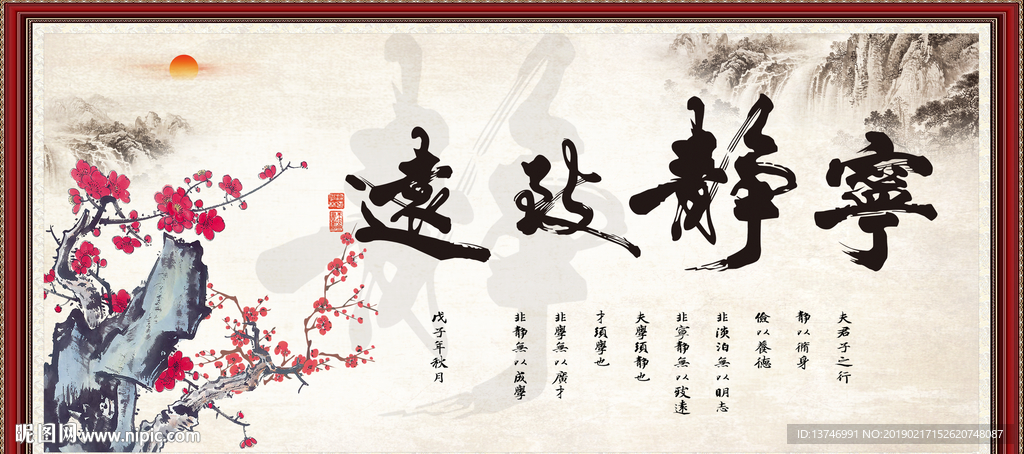 寧靜致遠
夫君子之行
靜以脩身
儉以養德
非淡泊無以明志
非寧靜無以致遠
夫學須靜也
才須學也
非學無以廣才
非靜無以成學
戊子年秋月
昵图网 www.nipic.com
ID:13746991 NO:20190217152620748087